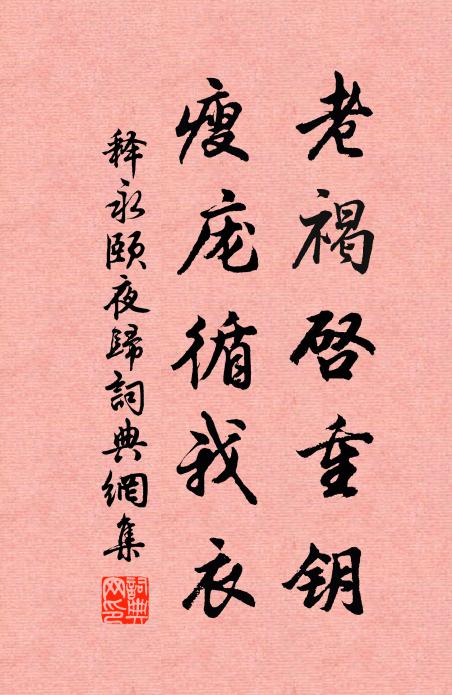 老褐启重钥
瘦庬循我衣
释永颐夜歸詞典網集
詞典網印